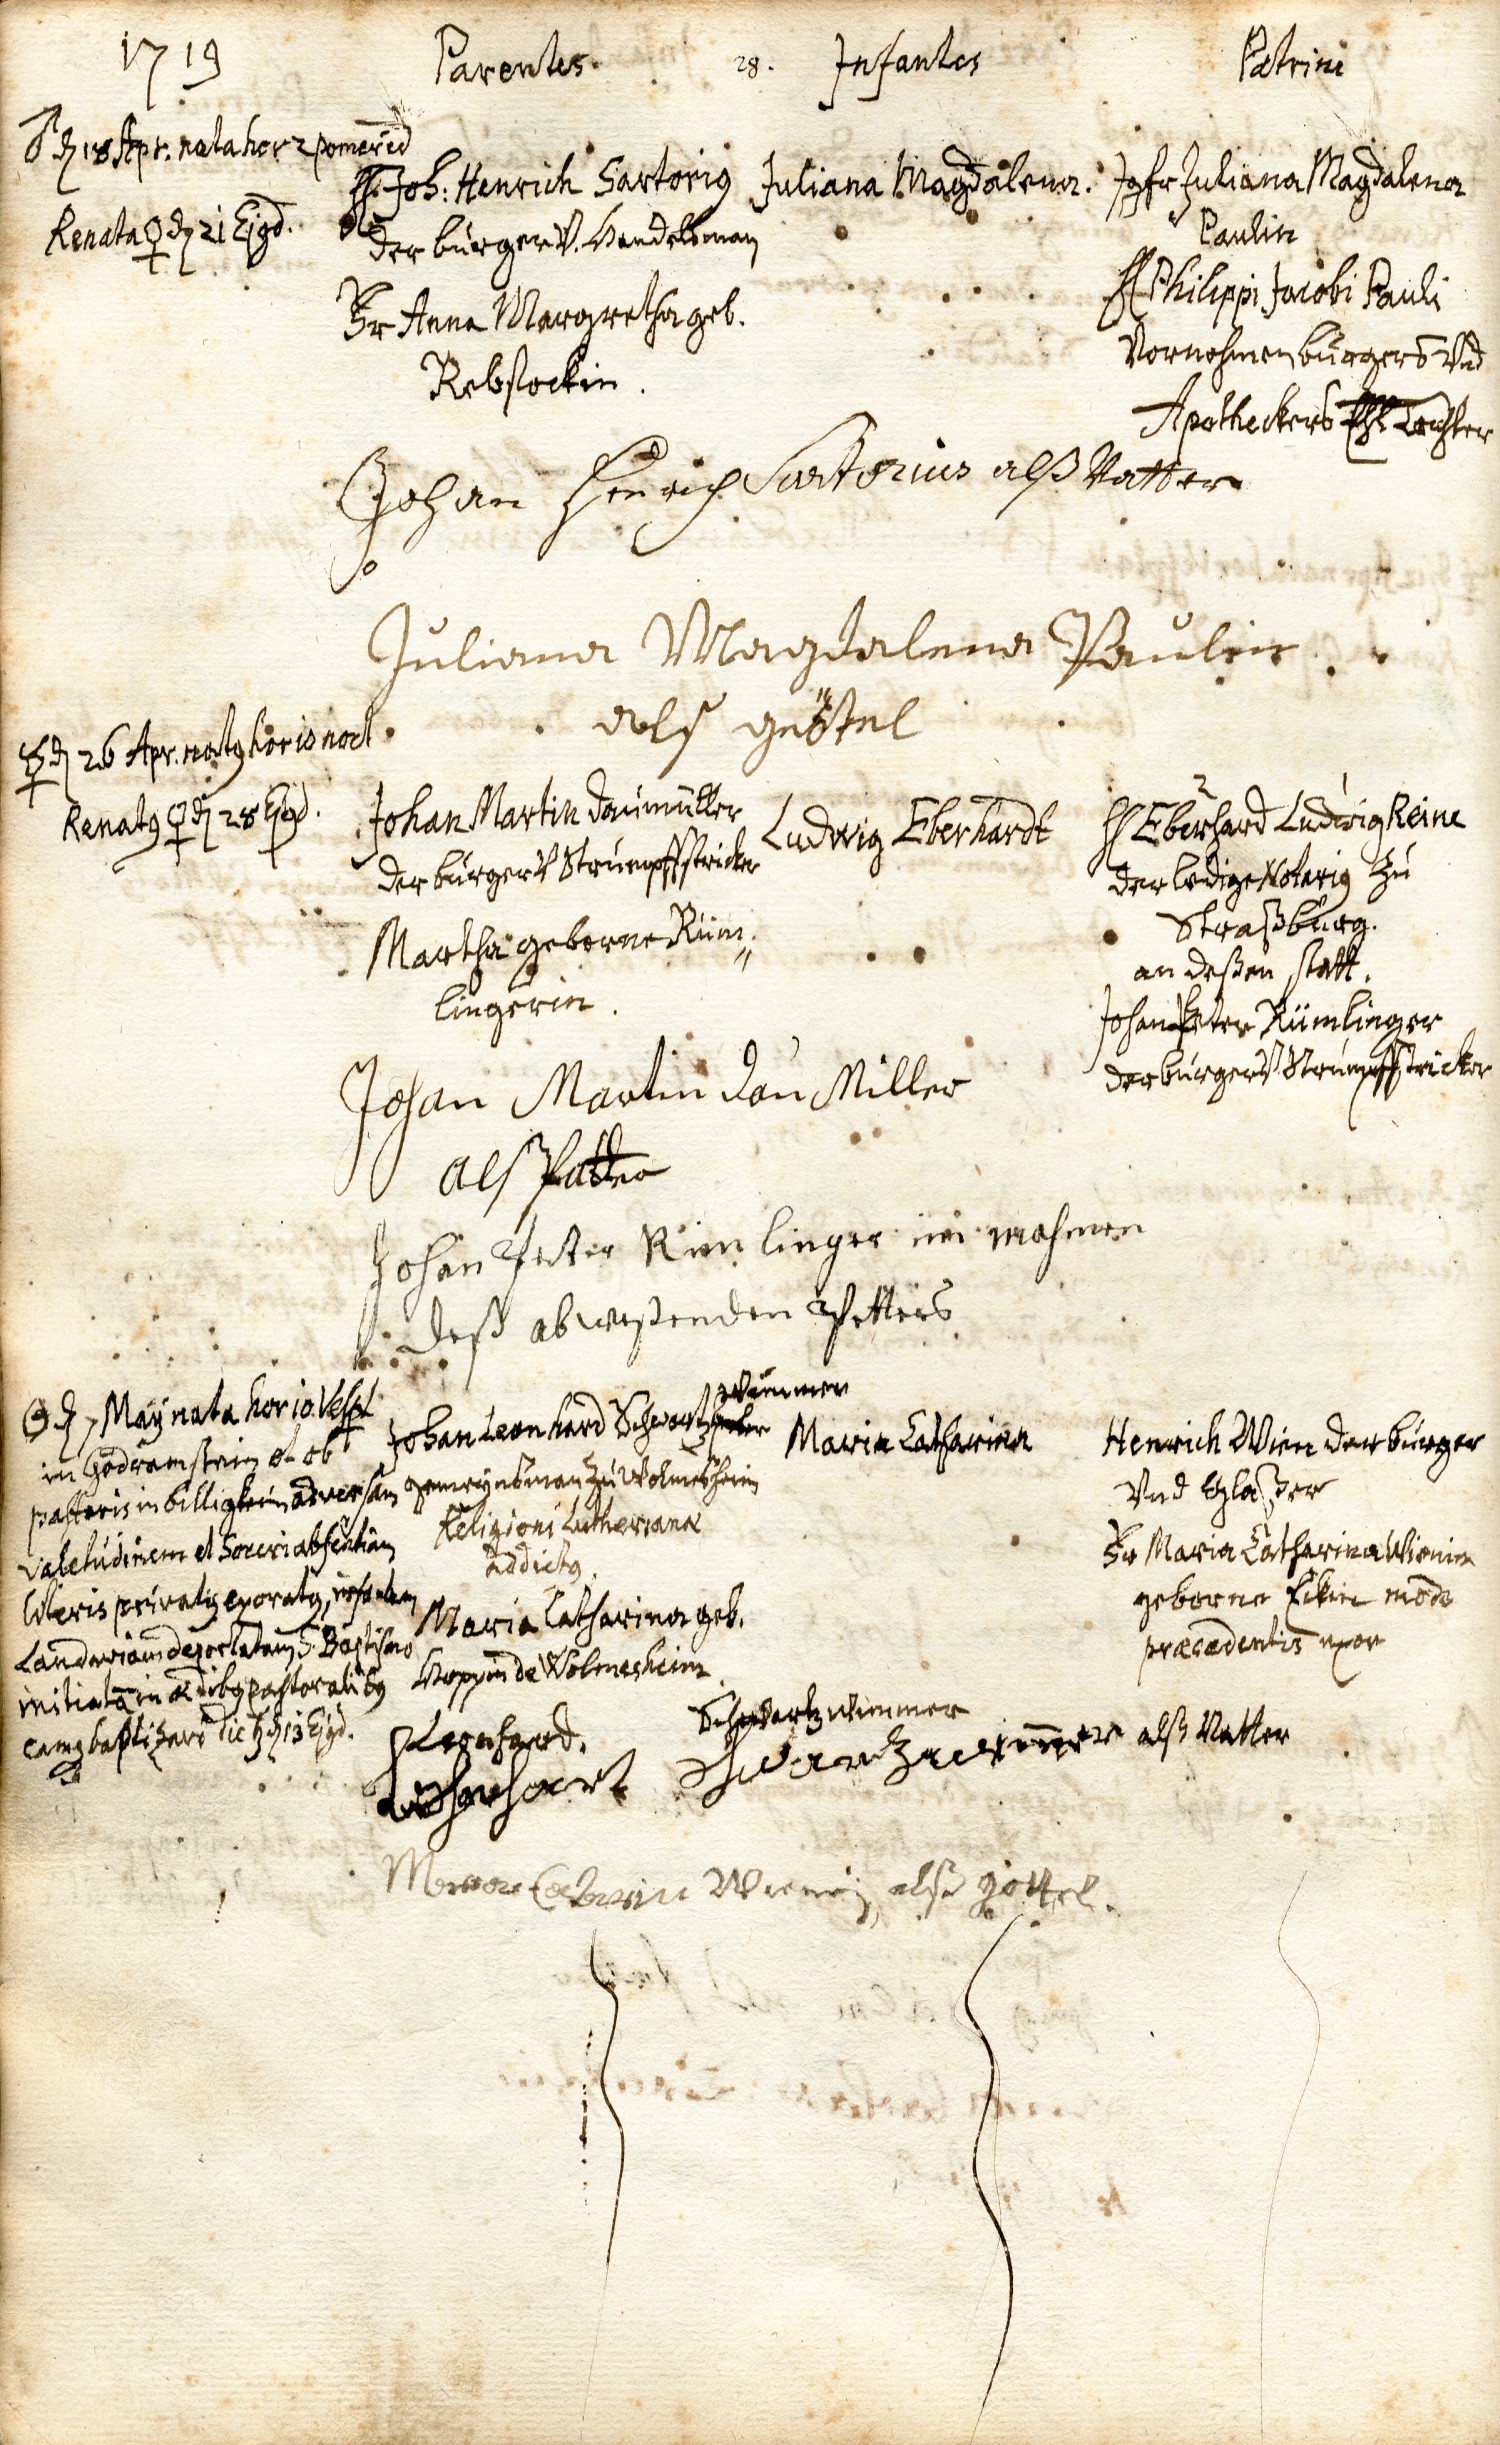 1719 Parentes. 28. Infantes Patrini
♂ d 18 Apr. nata hor 2 pomerid
Renata ♀ d 21 Ejqd.
H. Joh: Henrich Sartorig
der burger V. Handelsman
Fr Anna Margretha geb.
Rebstockin.
Juliana Magdalena.
Jgfr Juliana Magdalena
Paulin
H Philippi Jacobi Pauli
Vornehmen burgers Vnd
Apotheckers Ehl Tochter
Johan Henrich Sartorius alß Vatter
Juliana Magdalena Paulin.
als göttel
☿ d 26 Apr. natg hor 10 noct
Renatg ♀ d 28 Ejqd.
Johan Martin Daumüller
der burger V Strumpffstricker
Martha geborne Rüm„
lingerin.
Ludwig Eberhardt
H Eberhard Ludwig Reine
der ledige Notarig zu
Straßburg.
an deßen statt.
Johan Peter Rümlinger
der burger V Strumpffstricker
Johan Martin dau Miller
alß Vatter
Johan Peter Rimlinger im nahmen
deß abweßenden Petters
☉ d 7 Maÿ nata hor 10 Vesp
in Godramstein et ob
pastoris in billigheim adversam
valetudinem et Soceri absentiam
literis privatg exoratg, infantem
Landaviam deportatam S. Baptismo
initiatā in ædibg pastoralibg
camg baptizavi die ♄ d 13 Ejqd.
wimmer
Johan Leonhard Schwartz
gemeynsman zu Wolmesheim
Religioni Lutheranæ
addictg.
Maria Catharina geb.
Hoppin de Wolmesheim
Maria Catharina
Henrich Wien der burger
Vnd Glaßer
Fr Maria Catharina Wienin
geborne Eckin modo
præcedentis uxor
Leonhard. Schwartzwimmer
Schwartzwimmer alß Vatter
Maria Catharin Wienin alß göttel.